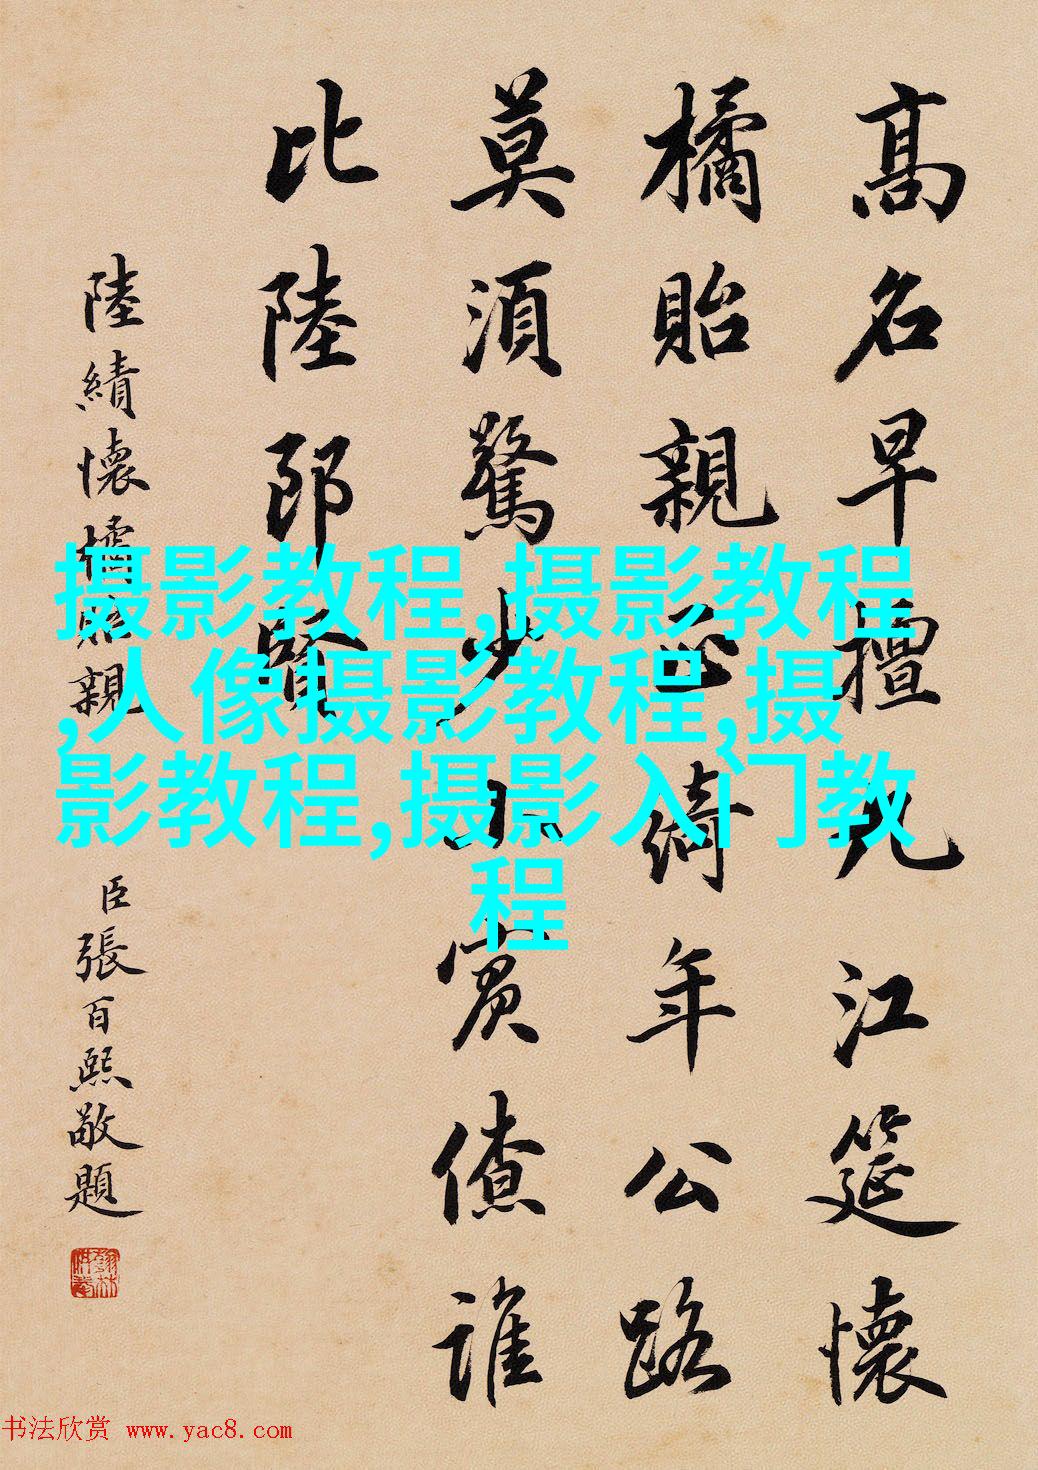 高名早擅九江筵懷
橘貽親正綺年公路
莫須驚少小賓僚誰
比陸郎賢
陸績懷橘貽親
臣張百熙敬題
摄影教程,摄影教程
,人像摄影教程,摄
影教程,摄影入门教
程
书法欣赏 www.yac8.com